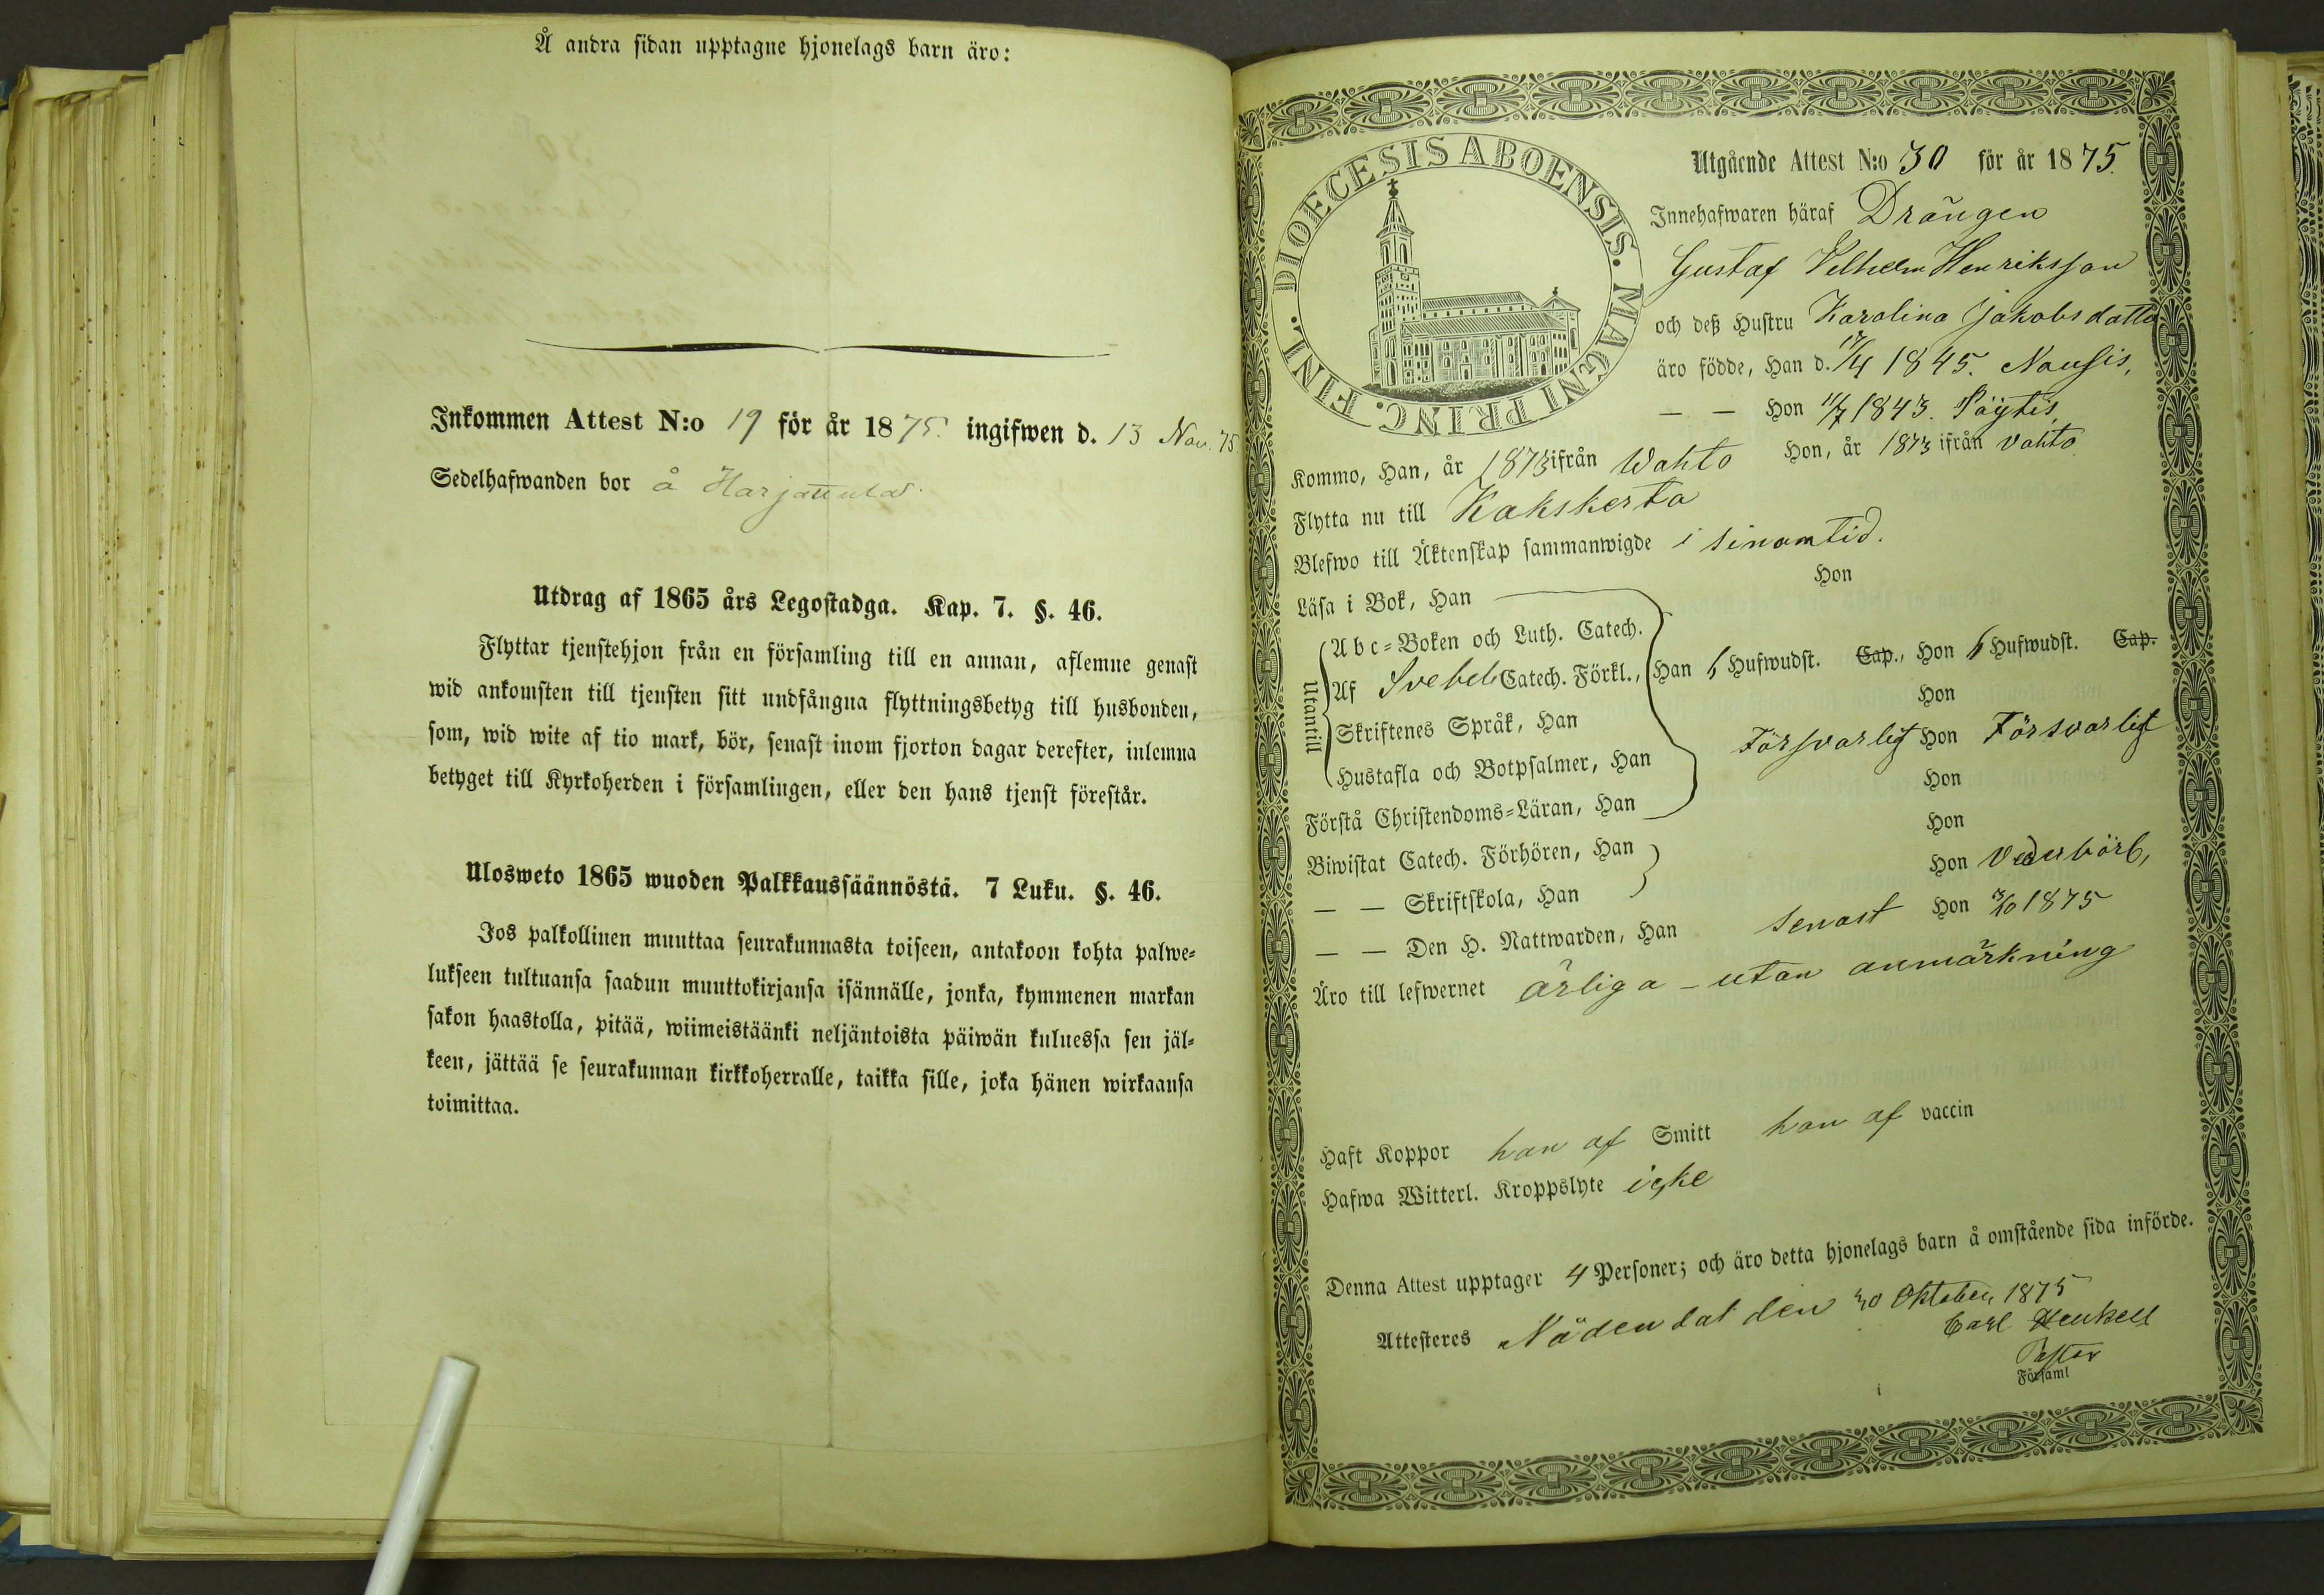 Å andra sidan upptagne hjonelags barn äro:
Inkommen Attest N:o 19 för år 1875. ingifwen d. 13 Nov. 75.
Sedelhafwanden bor å Harjattula.
Utdrag af 1865 års Legostadga. Kap. 7. §. 46.
Flyttar tjenstehjon från en församling till en annan, aflemne genast
wid ankomsten till tjensten sitt undfångna flyttningsbetyg till husbonden,
som, wid wite af tio mark, bör, senast inom fjorton dagar derefter, inlemna
betyget till Kyrkoherden i församlingen, eller den hans tjenst förestår.
Ulosweto 1865 wuoden Palkkaussäännöstä. 7 Luku. §. 46.
Jos palkollinen muuttaa seurakunnasta toiseen, antakoon kohta palwe-
lukseen tultuansa saadun muuttokirjansa isännälle, jonka, kymmenen markan
sakon haastolla, pitää, wiimeistäänki neljäntoista päiwän kuluessa sen jäl-
keen, jättää se seurakunnan kirkkoherralle, taikka sille, joka hänen wirkaansa
toimittaa.
DIOECESIS ABOENSIS. MAGNI PRINC. FINL.
Utgående Attest N:o 30 för år 1875.
Innehafwaren häraf Drängen
Gustaf Vilhelm Henriksson
och deß Hustru Karolina Jakobsdatter
äro födde, Han d. 17/4 1845. Nousis,
— — Hon 11/7 1843. Pöytis
Kommo, Han, år 1873 ifrån Wahto Hon, år 1873 ifrån Vahto
Flytta nu till Kakskerta
Blefwo till Äktenskap sammanwigde i sinom tid.
Läsa i Bok, Han Hon
Utantill
Abc-Boken och Luth. Catech.
Af Svebel. Catech. Förkl., Han 6 Hufwudst. Cap., Hon 6 Hufwudst. Cap.
Skriftenes Språk, Han Hon
Hustafla och Botpsalmer, Han Försvarligt Hon Försvarligt
Förstå Christendoms-Läran, Han Hon
Biwistat Catech. Förhören, Han Hon
— — Skriftskola, Han Hon Vederbörl,
— — Den H. Nattwarden, Han senast Hon 3/10 1875
Äro till lefwernet ärliga – utan anmärkning
Haft Koppor han af Smitt hon af vaccin
Hafwa Witterl. Kroppslyte icke
Denna Attest upptager 4 Personer; och äro detta hjonelags barn å omstående sida införde.
Attesteres Nådendal den 30 Oktober 1875
Carl Henkell
Pastor
Församl